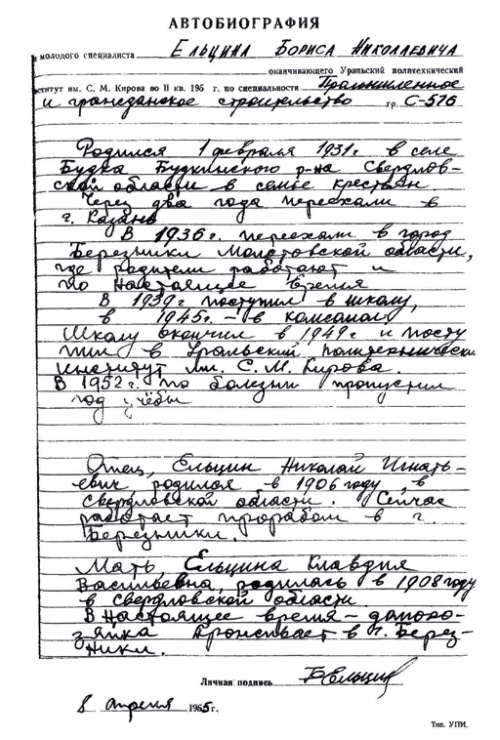 АВТОБИОГРАФИЯ
молодого специалиста Ельцина Бориса Николаевича
оканчивающего Уральский политехнический
институт им. С. М. Кирова во II кв. 195 г. по специальности Промышленное
и гражданское строительство гр. С-516
Родился 1 февраля 1931г. в селе
Будка Будкинского р-на Свердлов-
ской области в семье крестьян
Через два года переехали в
г. Казань
В 1936г. переехали в город
Березники Молотовской области,
где родители работают и
по настоящее время
В 1939г поступил в школу,
в 1945г. – в комсомол
Школу окончил в 1949г и посту
пил в Уральский политехнический
институт им. С. М. Кирова.
В 1952г. по болезни пропустил
год учёбы
Отец, Ельцин Николай Игнать-
евич родился в 1906 году, в
Свердловской области. Сейчас
работает прорабом в г.
Березники.
Мать, Ельцина Клавдия
Васильевна, родилась в 1908 году
в Свердловской области.
В настоящее время – домохо-
зяйка проживает в г. Берез-
ники.
Личная подпись БЕльцин
8 апреля 1955г.
Тип. УПИ.